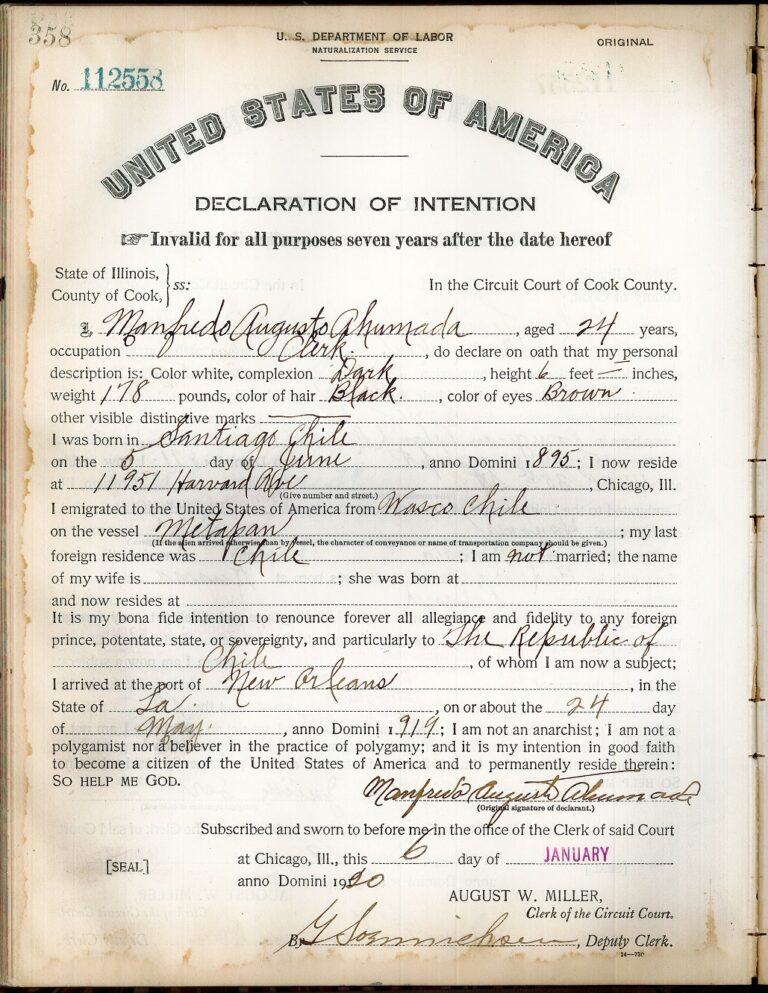 358
U. S. DEPARTMENT OF LABOR
NATURALIZATION SERVICE
ORIGINAL
No. 112558
UNITED STATES OF AMERICA
DECLARATION OF INTENTION
☞ Invalid for all purposes seven years after the date hereof
State of Illinois,
County of Cook, } ss:
In the Circuit Court of Cook County.
I, Manfredo Augusto Ahumada, aged 24 years,
occupation Clerk, do declare on oath that my personal
description is: Color white, complexion Dark, height 6 feet — inches,
weight 178 pounds, color of hair Black, color of eyes Brown
other visible distinctive marks ———
I was born in Santiago Chile
on the 5 day of June, anno Domini 1895; I now reside
at 11951 Harvard Ave, Chicago, Ill.
(Give number and street.)
I emigrated to the United States of America from Wasco Chile
on the vessel Metapan; my last
(If the alien arrived otherwise than by vessel, the character of conveyance or name of transportation company should be given.)
foreign residence was Chile; I am not married; the name
of my wife is; she was born at
and now resides at
It is my bona fide intention to renounce forever all allegiance and fidelity to any foreign
prince, potentate, state, or sovereignty, and particularly to The Republic of
Chile, of whom I am now a subject;
I arrived at the port of New Orleans, in the
State of La., on or about the 24 day
of May, anno Domini 1919; I am not an anarchist; I am not a
polygamist nor a believer in the practice of polygamy; and it is my intention in good faith
to become a citizen of the United States of America and to permanently reside therein:
SO HELP ME GOD.
Manfredo Augusto Ahumada
(Original signature of declarant.)
Subscribed and sworn to before me in the office of the Clerk of said Court
at Chicago, Ill., this 6 day of JANUARY
[SEAL]
anno Domini 1920
AUGUST W. MILLER,
Clerk of the Circuit Court.
By, Deputy Clerk.
14—730